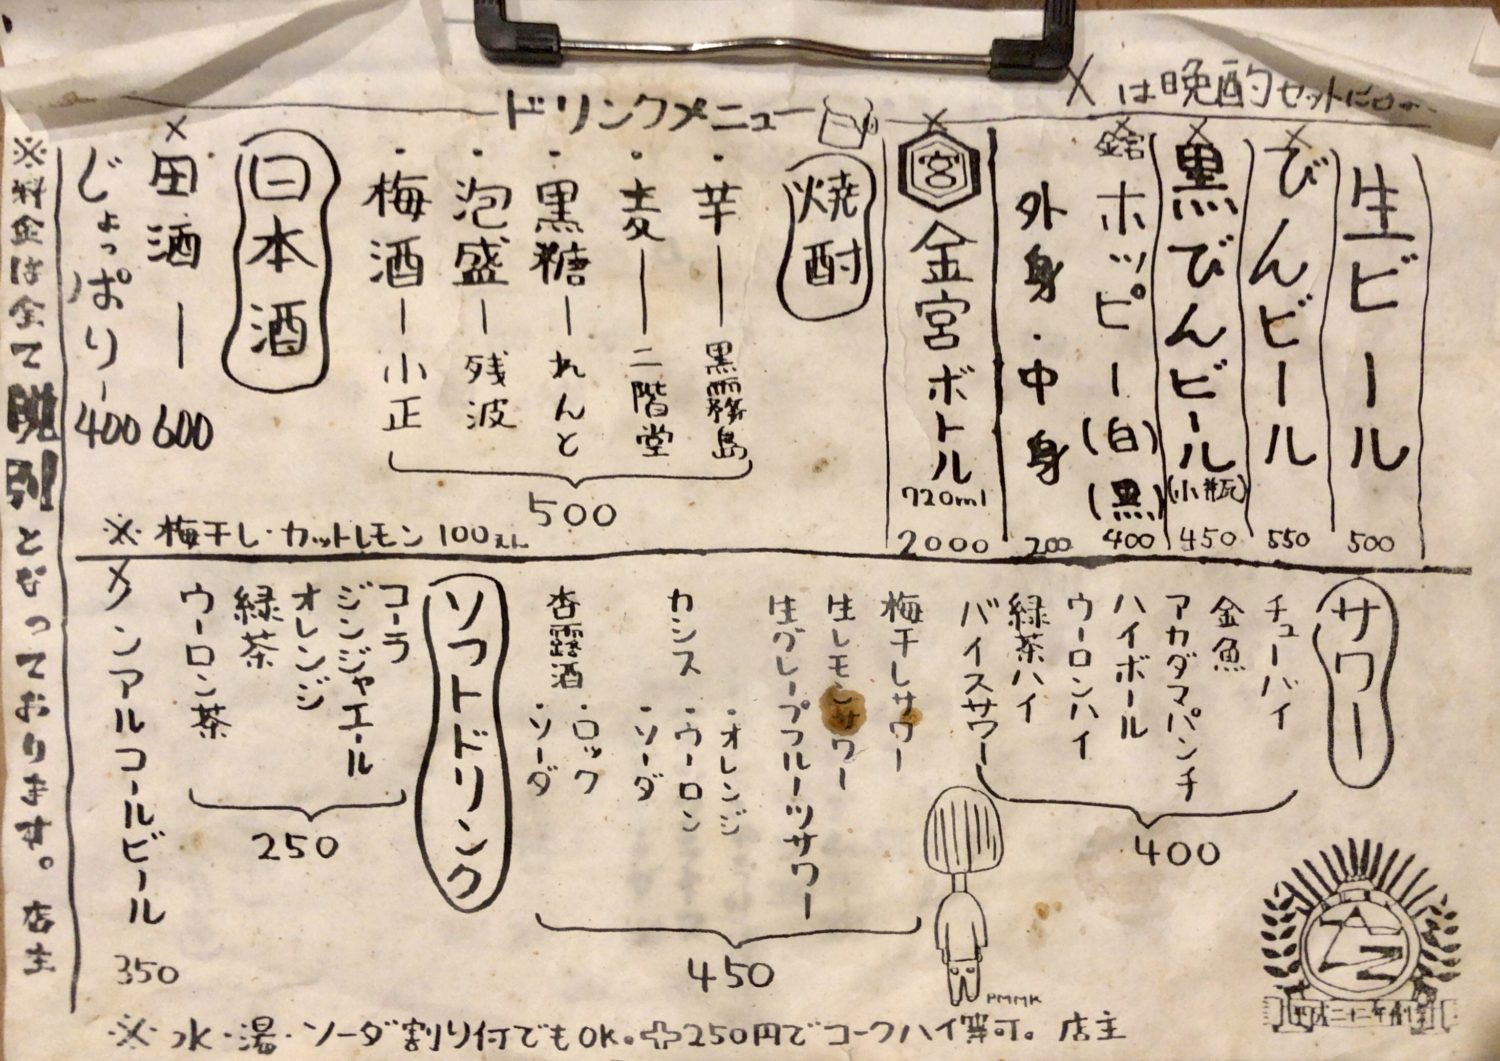 ×は晩酌セットに
ドリンクメニュー
生ビール 500
びんビール 550
黒びんビール(小瓶) 450
ホッピー(白)(黒) 400
外身・中身 200
宮 金宮ボトル 720ml 2000
焼酎
・芋ー黒霧島
・麦ー二階堂
・黒糖ーれんと
・泡盛ー残波
・梅酒ー小正
500
日本酒
田酒ー600
じょっぱりー400
※梅干し・カットレモン 100えん
サワー
チューハイ
金魚
アカダマパンチ
ハイボール
ウーロンハイ
緑茶ハイ
バイスサワー
400
梅干しサワー
生レモンサワー
生グレープフルーツサワー
カシス
・オレンジ
・ウーロン
・ソーダ
杏露酒
・ロック
・ソーダ
450
ソフトドリンク
コーラ
ジンジャエール
オレンジ
緑茶
ウーロン茶
250
ノンアルコールビール 350
PMMK
※水・湯・ソーダ割り付でもOK。250円でコークハイ等可。店主
※料金は全て税別となっております。店主